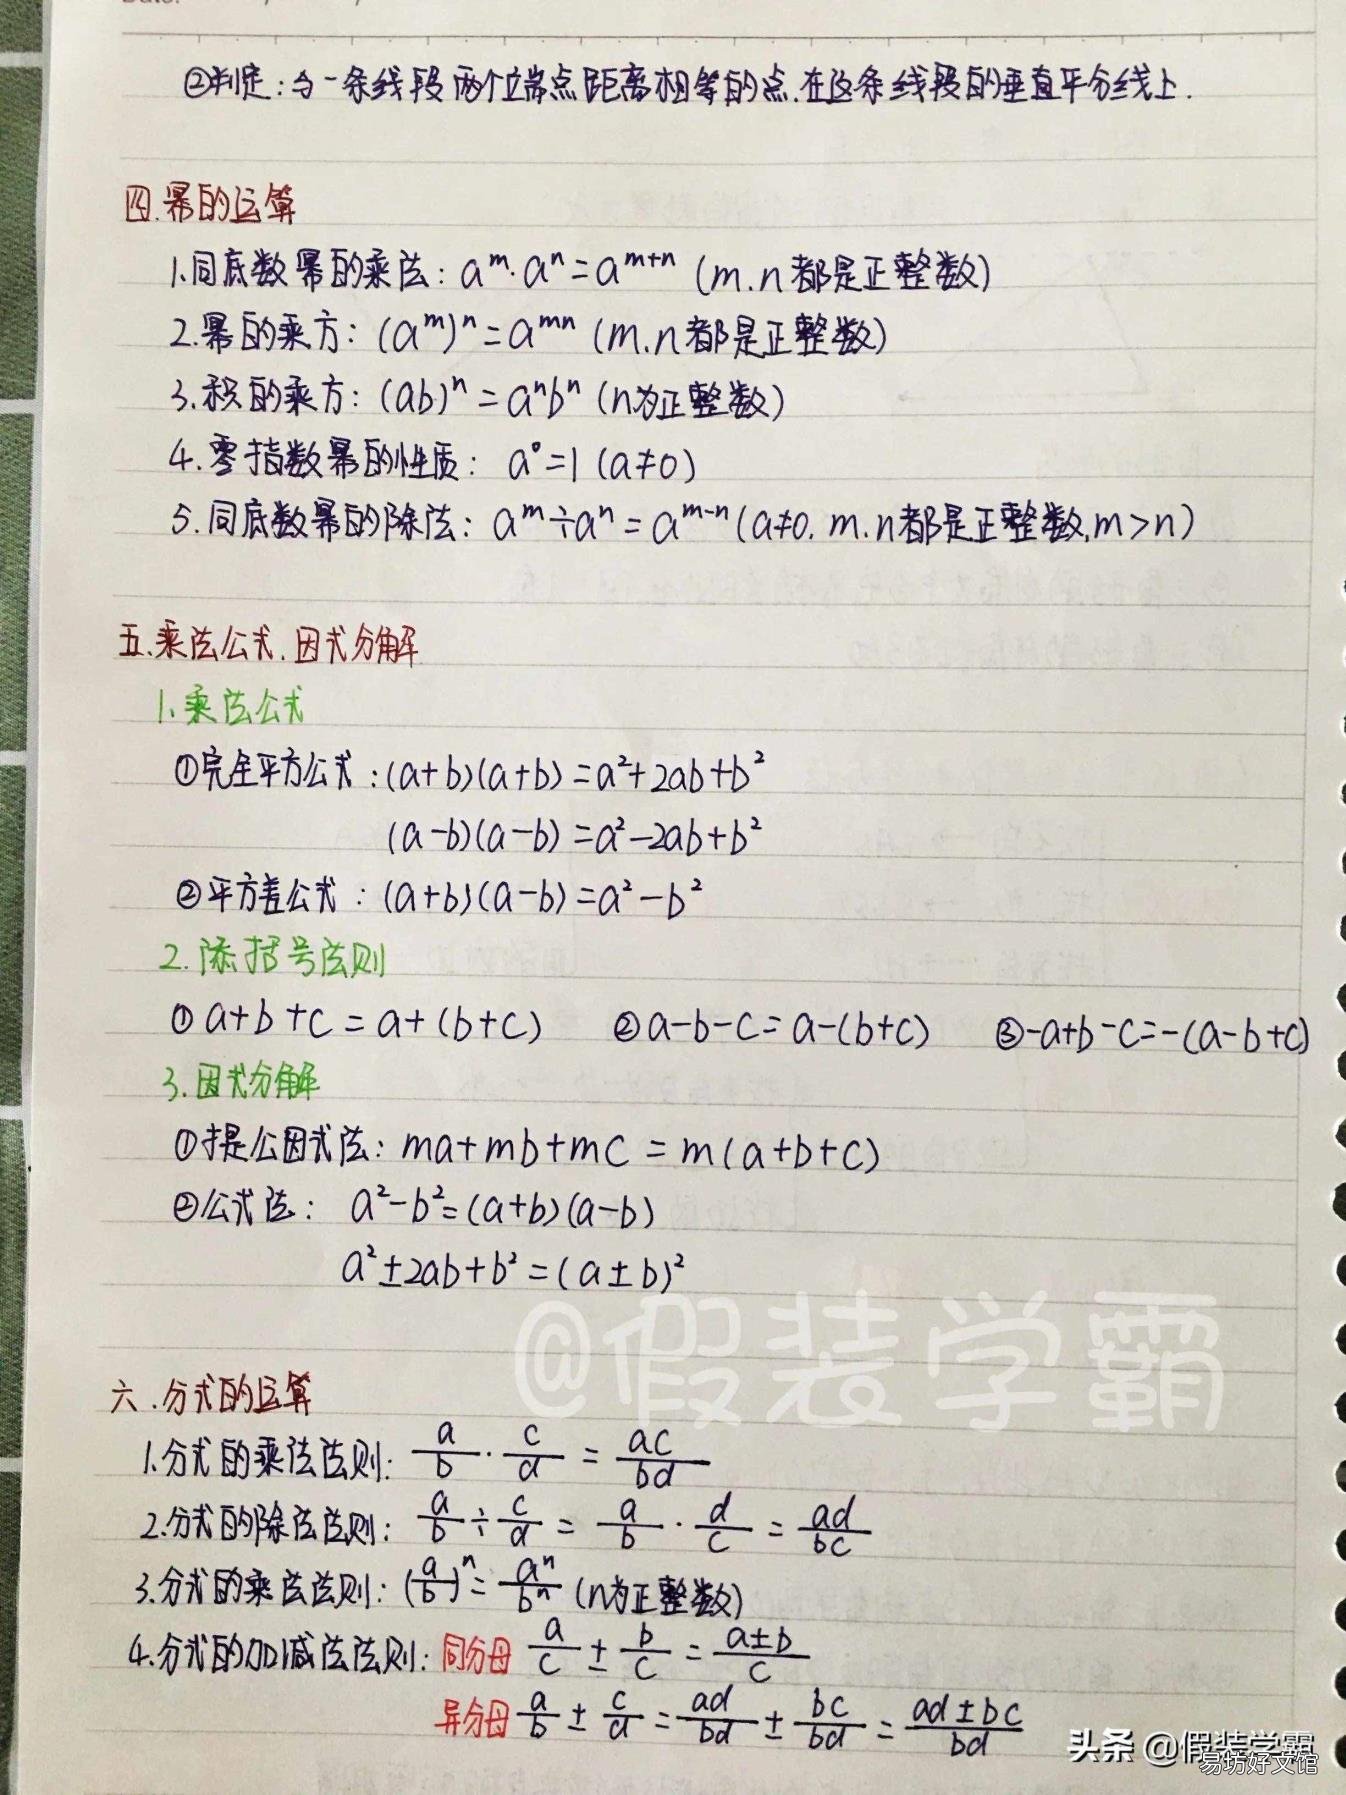 ②判定:与一条线段两个端点距离相等的点.在这条线段的垂直平分线上.
四.幂的运算
1.同底数幂的乘法: aᵐ·aⁿ=aᵐ⁺ⁿ (m.n都是正整数)
2.幂的乘方: (aᵐ)ⁿ=aᵐⁿ (m.n都是正整数)
3.积的乘方: (ab)ⁿ=aⁿbⁿ (n为正整数)
4.零指数幂的性质: a⁰=1 (a≠0)
5.同底数幂的除法: aᵐ÷aⁿ=aᵐ⁻ⁿ(a≠0. m.n都是正整数,m>n)
五.乘法公式.因式分解
1.乘法公式
①完全平方公式:(a+b)(a+b)=a²+2ab+b²
(a-b)(a-b)=a²-2ab+b²
②平方差公式:(a+b)(a-b)=a²-b²
2.添括号法则
①a+b+c=a+(b+c) ②a-b-c=a-(b+c) ③-a+b-c=-(a-b+c)
3.因式分解
①提公因式法: ma+mb+mc=m(a+b+c)
②公式法: a²-b²=(a+b)(a-b)
a²±2ab+b²=(a±b)²
@假装学霸
六.分式的运算
1.分式的乘法法则: a/b·c/d=ac/bd
2.分式的除法法则: a/b÷c/d=a/b·d/c=ad/bc
3.分式的乘法法则:(a/b)ⁿ=aⁿ/bⁿ (n为正整数)
4.分式的加减法法则:同分母 a/c±b/c=a±b/c
异分母 a/b±c/d=ad/bd±bc/bd=ad±bc/bd
头条 @假装学霸
易坊好文馆